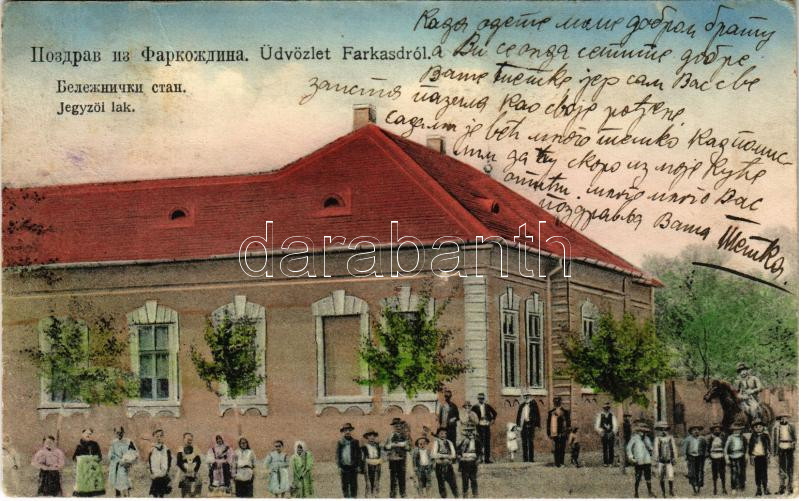 Поздрав из Фаркождина. Üdvözlet Farkasdról.
Бележнички стан.
Jegyzöi lak.
Када одете моме добром брату
а Ви се онда сетите добре
Ваше тетке јер сам Вас све
заиста пазила као своје рођене.
Сада ми је већ много тешко кад помис
лим да ћу скоро из моје куће
отићи. много много Вас
поздравља Ваша Тетка.
darabanth
.com